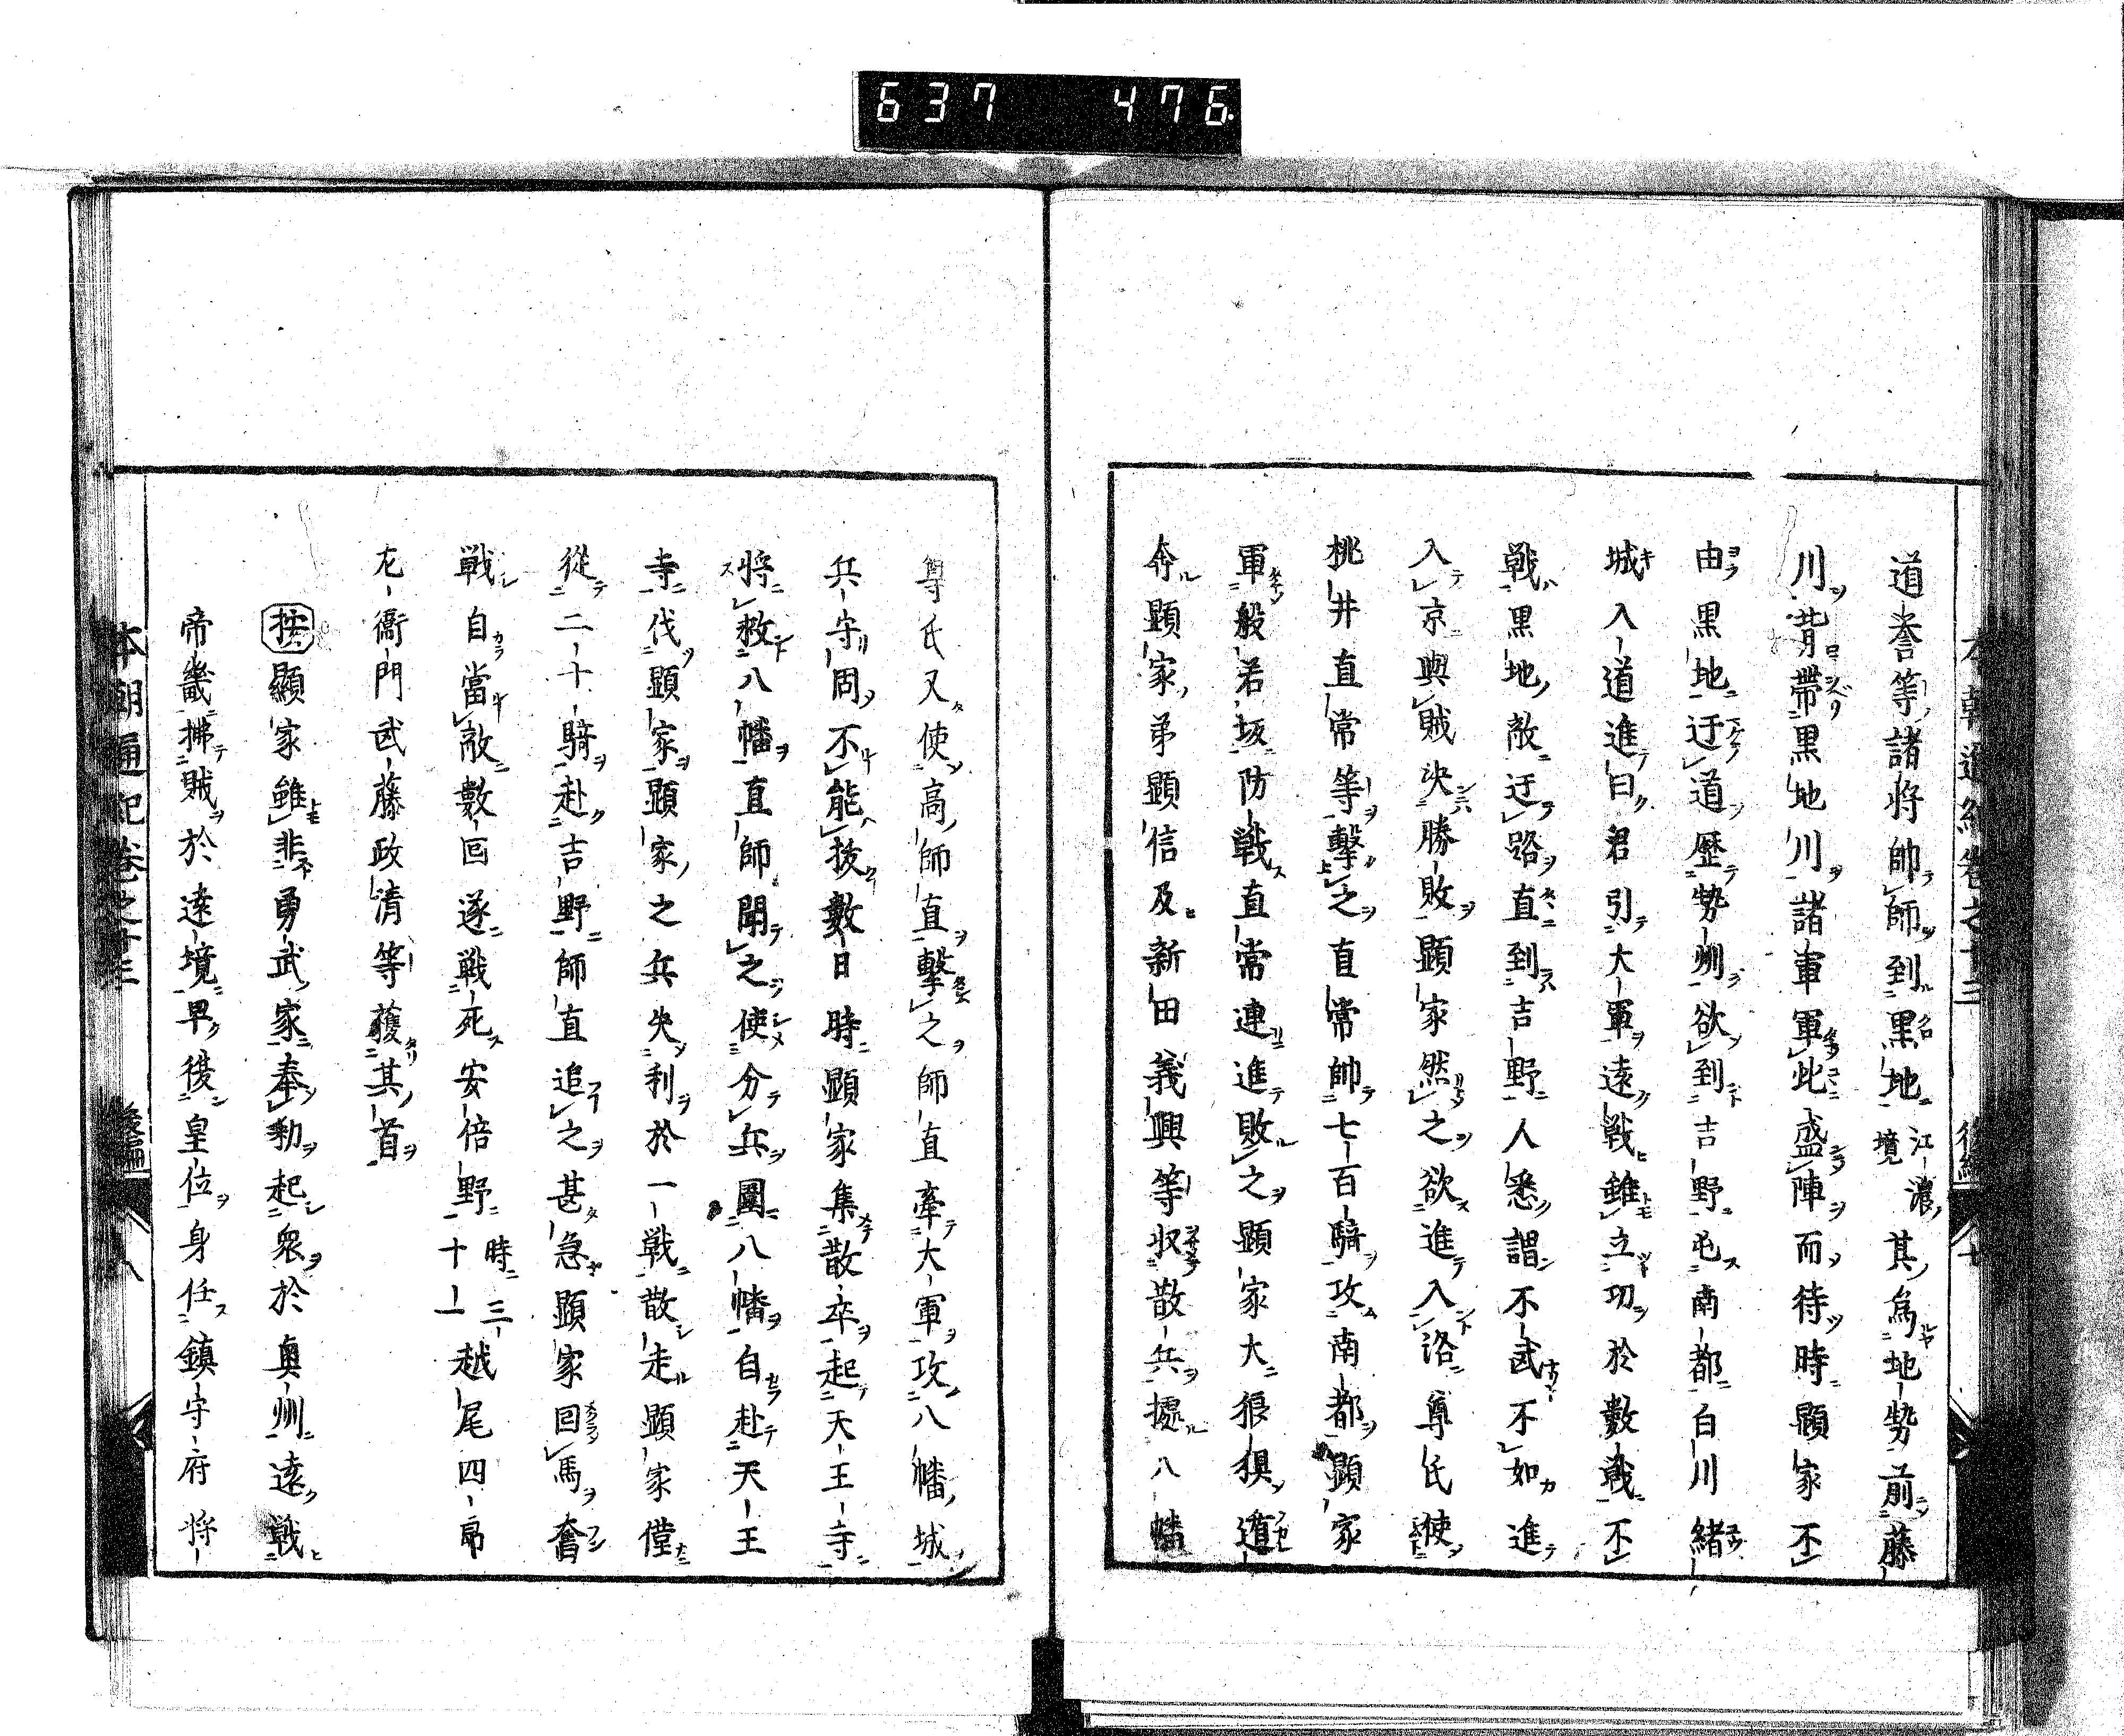 637 476
本朝通紀卷之十三 後編
道誉等諸将帥師到黒地江濃境其為地勢前藤
川背帯黒地川諸軍軍此盛陣而待時顕家不
由黒地迂道歴勢州欲到吉野屯南都白川結
城入道進曰君引大軍遠戦雖立功於數戦不
戦黒地敵迂路直到吉野人悉謂不武不如進
入京與賊决勝敗顕家然之欲進入洛尊氏使
桃井直常等擊之直常帥七百騎攻南都顕家
軍般若坂防戦直常連進敗之顕家大狼狽遁
奔顕家弟顕信及新田義興等収散兵據八幡
尊氏又使高師直擊之師直牽大軍攻八幡城
兵守固不能抜數日時顕家集散卒起天王寺
将救八幡直師聞之使分兵圍八幡自赴天王
寺伐顕家顕家之兵失利於一戦散走顕家僅
從二十騎赴吉野師直追之甚急顕家回馬奮
戦自當敵數回遂戦死安倍野時二十一三越尾四郎
左衛門武藤政清等獲其首
按顯家雖非勇武家奉勅起衆於奥州遠戦
帝畿拂賊於遠境早復皇位身任鎮守府将
本朝通紀卷之十三 後編 八